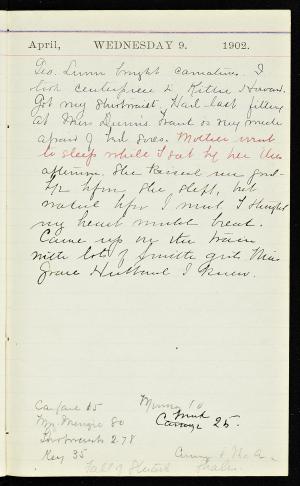 April, WEDNESDAY 9. 1902.
Geo. Lunn bought carnations. I
took centerpiece to Kittie Howard.
Got my Shirtwaist. Had last fitting
at Miss Dennis. Aunt is very much
afraid of bed sores. Mother went
to sleep while I sat by her this
afternoon. She kissed me good-
bye before she slept, but
not before I must I thought
my heart would break.
Came up on the train
with lots of Smith girls. Miss
Grace Hubbard I knew.
Carfare 15
Mr. 80
Shirtwaists 2.78
Key 35
Money 10
Carriage 25.